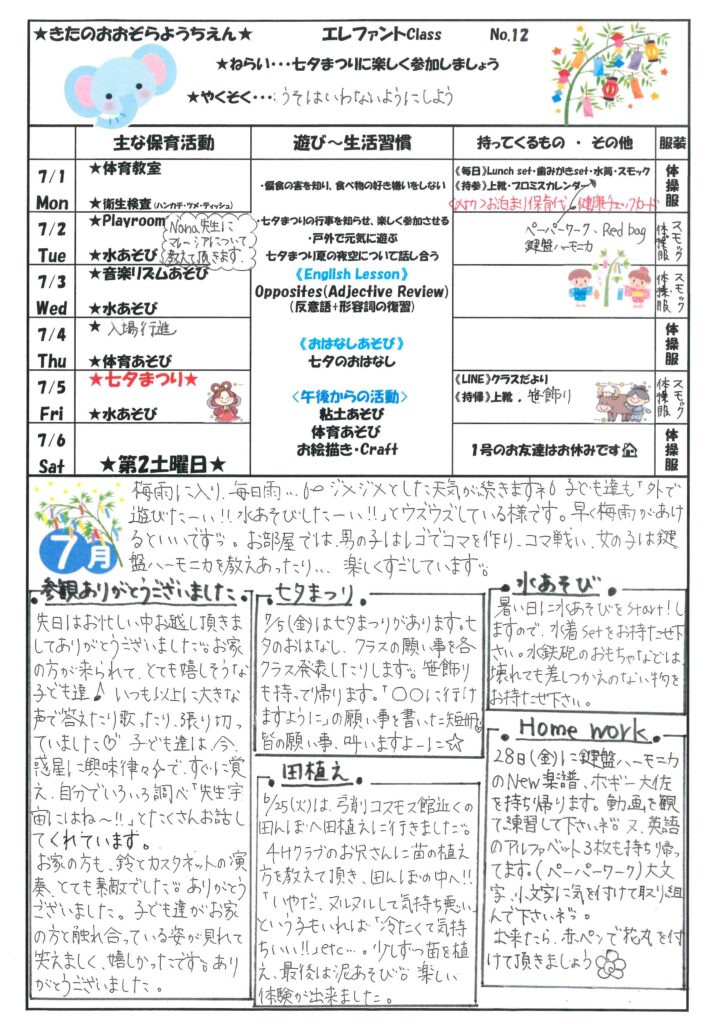 ★きたのおおぞらようちえん★ エレファントClass No.12
★ねらい・・・七夕まつりに楽しく参加しましょう
★やくそく・・・うそはいわないようにしよう
主な保育活動 遊び～生活習慣 持ってくるもの ・ その他 服装
7/1 Mon
★体育教室
★衛生検査(ハンカチ・ツメ・ティッシュ)
・偏食の害を知り、食べ物の好き嫌いをしない
《毎日》Lunch set・歯みがきset・水筒・スモック
《持参》上靴・プロミスカレンダー
お泊り保育代、健康チェックカード
体操服
7/2 Tue
★Playroom
Nana先生にマレーシアについて教えて頂きます。
★水あそび
・七夕まつりの行事を知らせ、楽しく参加させる
・戸外で元気に遊ぶ
七夕まつり夏の夜空について話し合う
ペーパーワーク、Red bag
鍵盤ハーモニカ
スモック 体操服
7/3 Wed
★音楽リズムあそび
★水あそび
《English Lesson》
Opposites(Adjective Review)
(反意語+形容詞の復習)
スモック 体操服
7/4 Thu
★ 入場行進
★体育あそび
《おはなしあそび》
七夕のおはなし
体操服
7/5 Fri
★七夕まつり★
★水あそび
<午後からの活動>
粘土あそび
体育あそび
お絵描き・Craft
《LINE》クラスだより
《持帰》上靴 、笹飾り
スモック 体操服
7/6 Sat
★第2土曜日★
1号のお友達はお休みです
体操服
7月
梅雨に入り、毎日雨… ジメジメとした天気が続きますね。子ども達も「外で
遊びたーい!!水あそびしたーい!!」とウズウズしている様です。早く梅雨があけ
るといいですね。お部屋では、男の子はレゴでコマを作り、コマ戦い、女の子は鍵
盤ハーモニカを教えあったり… 楽しくすごしています。
参観ありがとうございました
先日はお忙しい中お越し頂きま
してありがとうございました。お家
の方が来られて、とても嬉しそうな
子ども達♪ いつも以上に大きな
声で答えたり歌ったり、張り切っ
ていました♡ 子ども達は今、
惑星に興味津々で、すぐに覚
え、自分でいろいろ調べ「先生宇
宙にはね～!!」とたくさんお話し
てくれています。
お家の方も、鈴とカスタネットの演
奏、とても素敵でした。ありがとう
ございました。子ども達がお家
の方と触れ合っている姿が見れて
笑えましく、嬉しかったです。あり
がとうございました。
七夕まつり
7/5(金)は七夕まつりがあります。七
夕のおはなし、クラスの願い事を各
クラス発表したりします。笹飾り
も持って帰ります。「〇〇に行け
ますように」の願い事を書いた短冊。
皆の願い事、叫いますよーに☆
田植え
6/25(火)は、弓削コスモス館近くの
田んぼへ田植えに行きました。
4Hクラブのお兄さんに苗の植え
方を教えて頂き、田んぼの中へ!!
「いやだ、ヌルヌルして気持ち悪い」
という子もいれば「冷たくて気持
ちいい!!」etc…。少しずつ苗を植
え、最後は泥あそび。楽しい
体験が出来ました。
水あそび
暑い日に水あそびをstart!し
ますので、水着setをお持たせ下
さい。水鉄砲のおもちゃなどは、
壊れても差しつかえのない物を
お持たせ下さい。
Home work
28日(金)に鍵盤ハーモニカ
のNew楽譜、ボギー大佐
を持ち帰ります。動画を観
て練習して下さいネ。又、英語
のアルファベット3枚も持ち帰っ
てます。(ペーパーワーク)大文
字、小文字に気を付けて取り組
んで下さいネ。
出来たら、赤ペンで花丸を付
けて頂きましょう